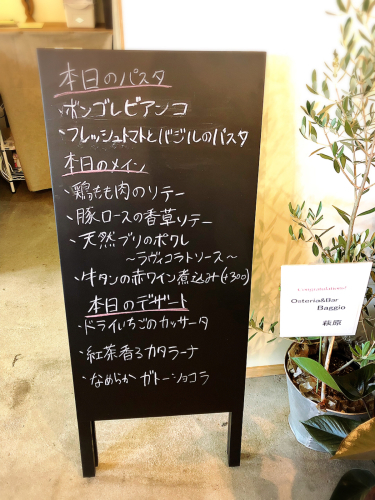 本日のパスタ
・ボンゴレビアンコ
・フレッシュトマトとバジルのパスタ
本日のメイン
・鶏もも肉のソテー
・豚ロースの香草ソテー
・天然ブリのポワレ
～ラヴィゴットソース～
・牛タンの赤ワイン煮込み(+300)
本日のデザート
・ドライいちごのカッサータ
・紅茶香るカタラーナ
・なめらかガトーショコラ
Congratulations!
Osteria&Bar
Baggio
萩原